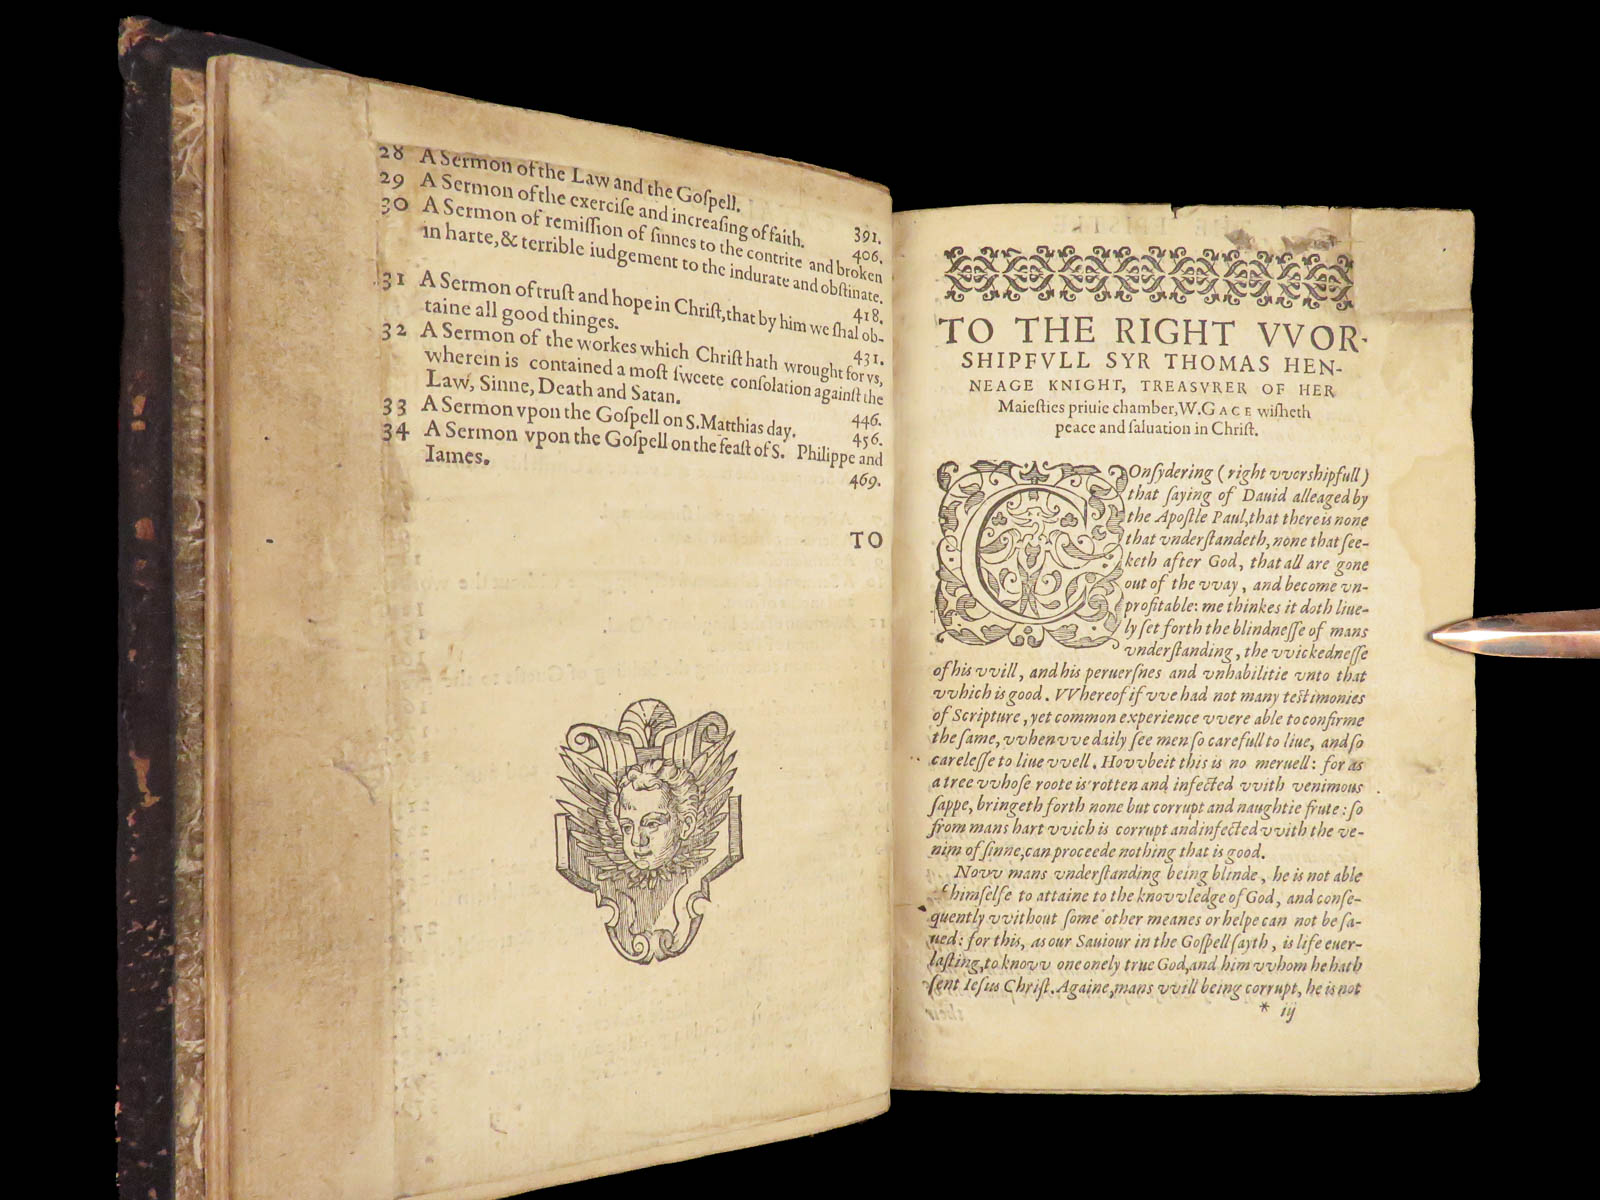 28 A Sermon of the Law and the Goſpell.
391.
29 A Sermon of the exerciſe and increaſing of faith.
406.
30 A Sermon of remiſſion of ſinnes to the contrite and broken
in harte,& terrible iudgement to the indurate and obſtinate.
418.
31 A Sermon of truſt and hope in Chriſt,that by him we ſhal ob-
taine all good thinges.
431.
32 A Sermon of the workes which Chriſt hath wrought for vs,
wherein is contained a moſt ſweete conſolation againſt the
Law, Sinne, Death and Satan.
446.
33 A Sermon vpon the Goſpell on S.Matthias day.
456.
34 A Sermon vpon the Goſpell on the feaſt of S. Philippe and
Iames.
469.
TO
TO THE RIGHT VVOR-
SHIPFVLL SYR THOMAS HEN-
NEAGE KNIGHT, TREASVRER OF HER
Maieſties priuie chamber, W. GACE wiſheth
peace and ſaluation in Chriſt.
COnſydering (right vvorshipfull)
that ſaying of Dauid alleaged by
the Apoſtle Paul,that there is none
that vnderſtandeth, none that ſee-
keth after God, that all are gone
out of the vvay, and become vn-
profitable: me thinkes it doth liue-
ly ſet forth the blindneſſe of mans
vnderſtanding, the vvickedneſſe
of his vvill, and his peruerſnes and vnhabilitie vnto that
vvhich is good. VVhereof if vve had not many teſtimonies
of Scripture, yet common experience vvere able to confirme
the ſame, vvhen vve daily ſee men ſo carefull to liue, and ſo
careleſſe to liue vvell. Hovvbeit this is no meruell: for as
a tree vvhoſe roote is rotten and infected vvith venimous
ſappe, bringeth forth none but corrupt and naughtie frute: ſo
from mans hart vvich is corrupt and infected vvith the ve-
nim of ſinne,can proceede nothing that is good.
Novv mans vnderſtanding being blinde, he is not able
himſelfe to attaine to the knovvledge of God, and conſe-
quently vvithout ſome other meanes or helpe can not be ſa-
ued: for this, as our Sauiour in the Goſpell ſayth, is life euer-
laſting,to knovv one onely true God,and him vvhom he hath
ſent Ieſus Chriſt. Againe,mans vvill being corrupt, he is not
* ij